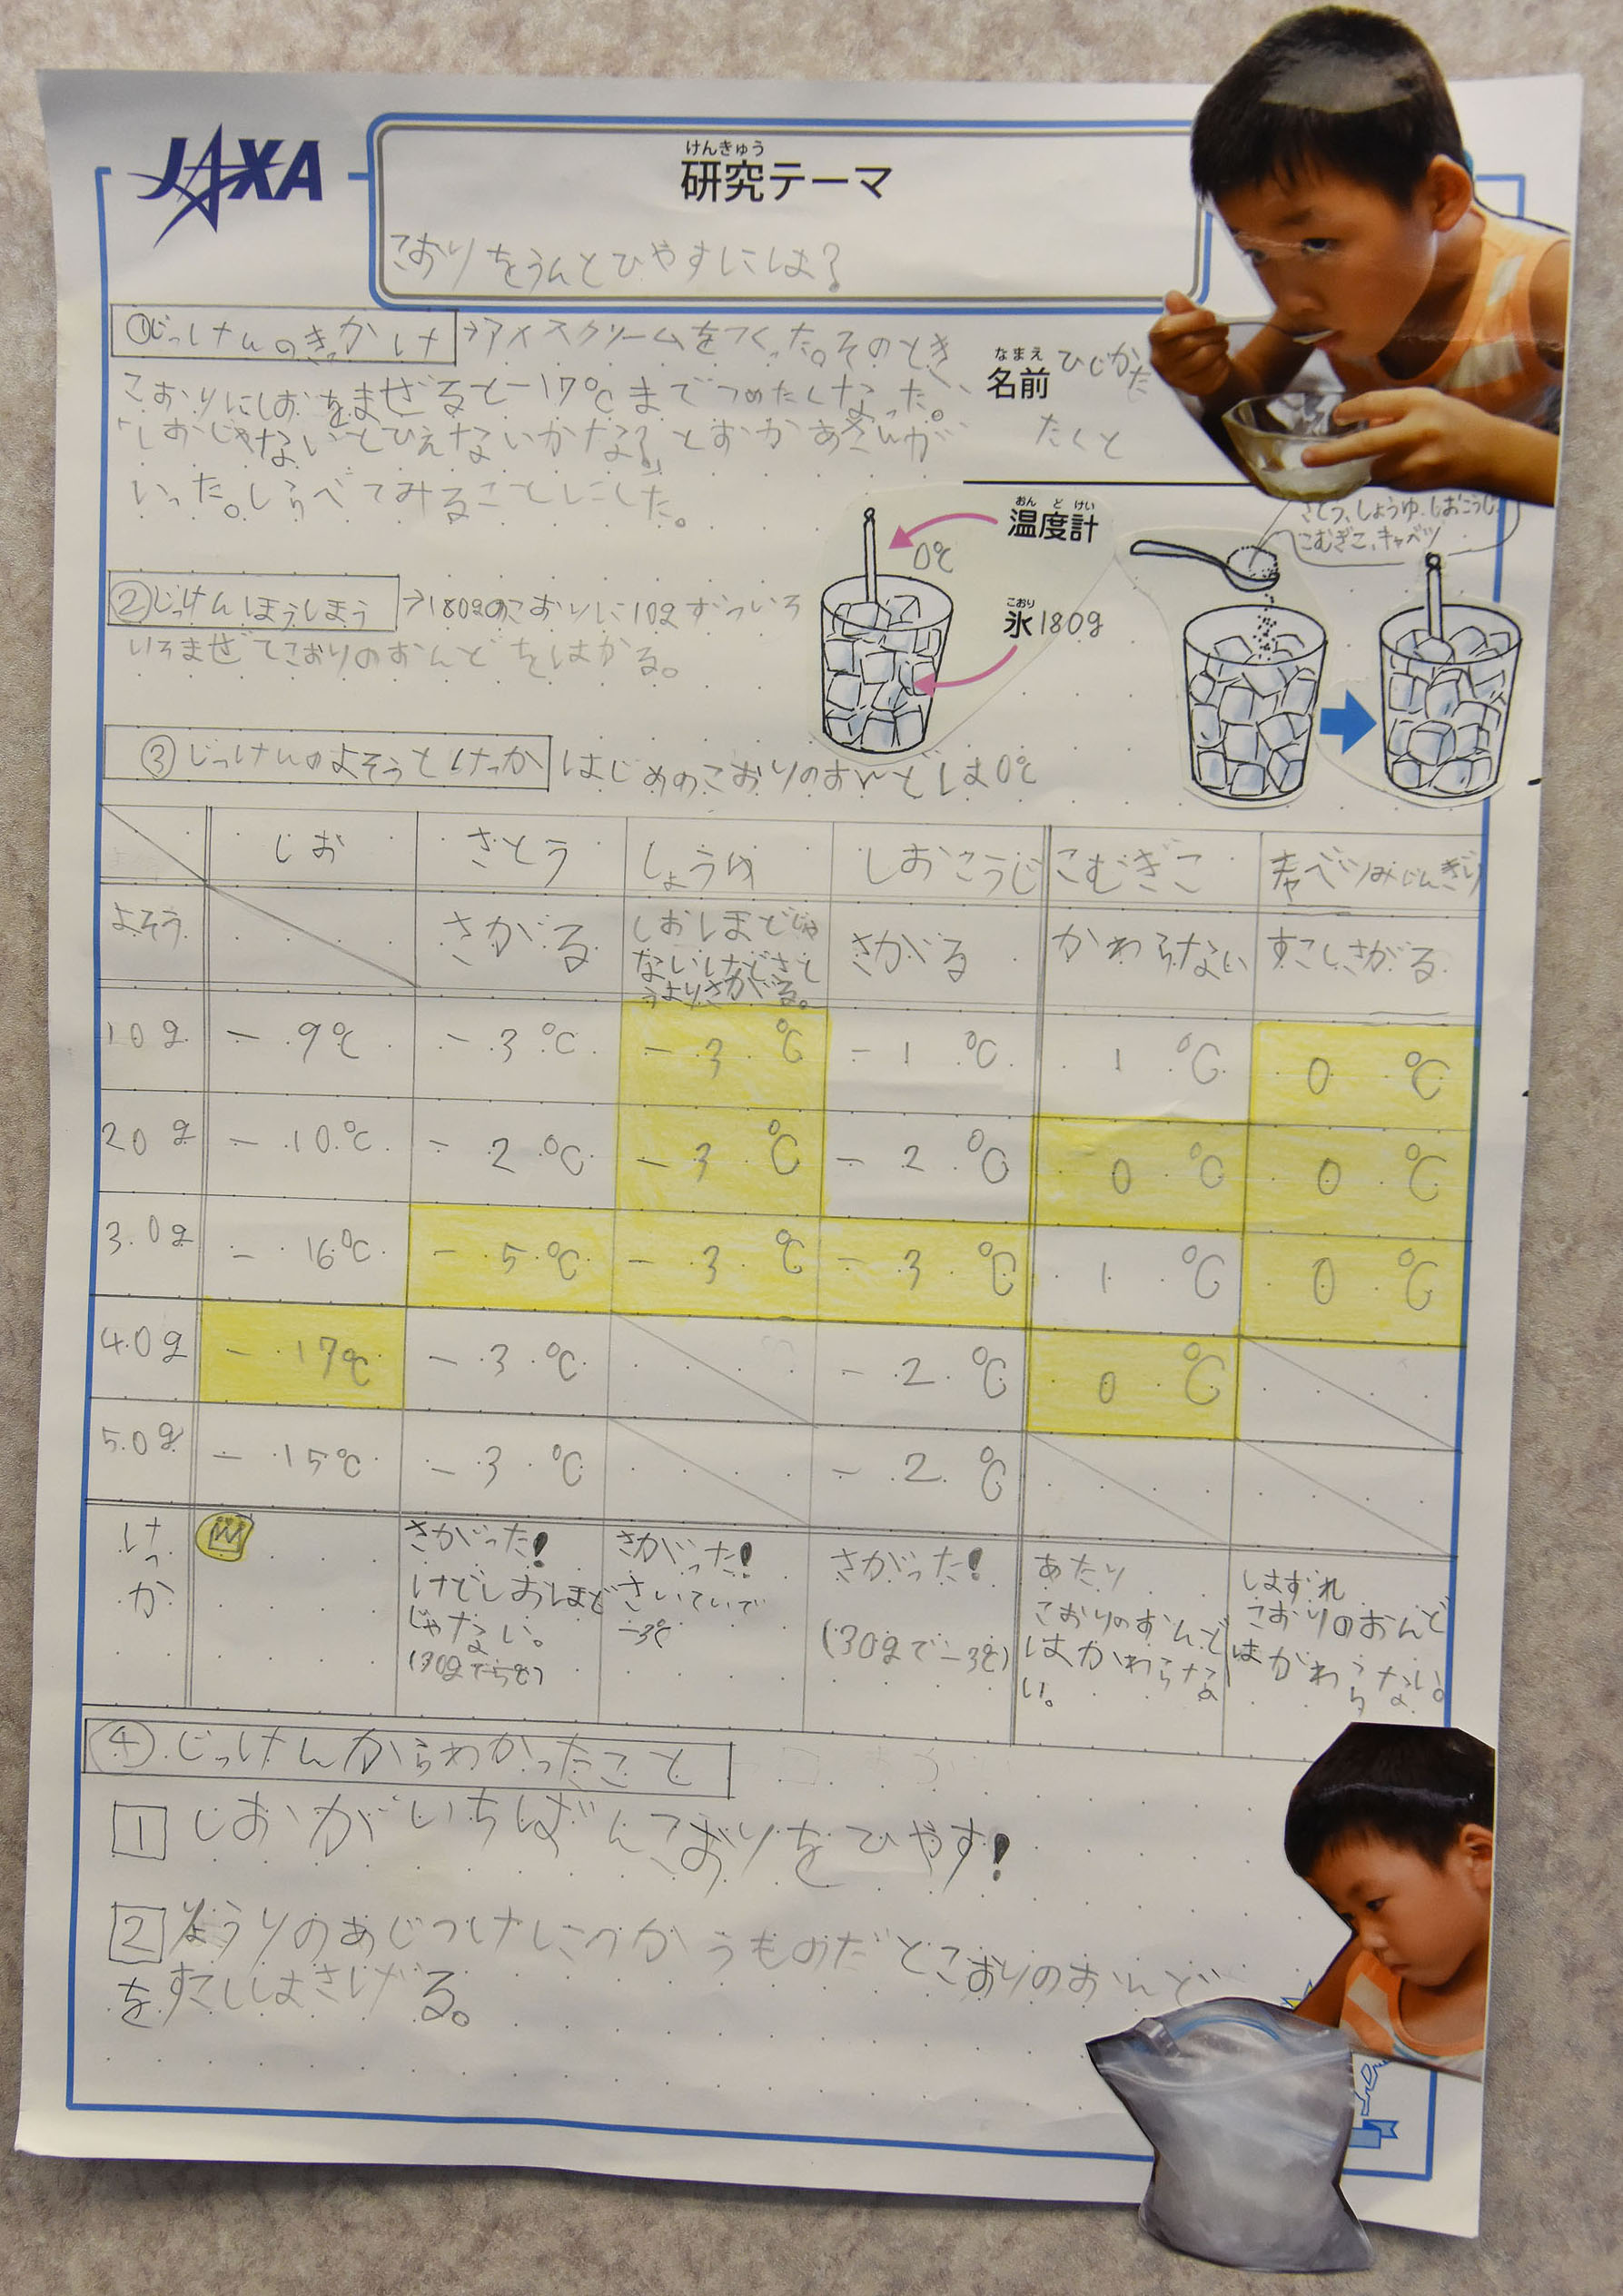 JAXA
けんきゅう
研究テーマ
こおりをうんとひやすには?
①じっけんのきっかけ→アイスクリームをつくった。そのとき
こおりにしおをまぜると-17℃までつめたくなった。
「しおじゃないとひえないかな?」とおかあさんが
いった。しらべてみることにした。
なまえ
名前 ひじかた
たくと
②じっけんほうほう→180gのこおりに10gずついろ
いろまぜてこおりのおんどをはかる。
おんどけい
温度計
0℃
こおり
氷180g
さとう、しょうゆ、しおこうじ、
こむぎこ、キャベツ
③じっけんのよそうとけっか はじめのこおりのおんどは0℃
しお さとう しょうゆ しおこうじ こむぎこ キャベツみじんぎり
よそう さがる しおほどじゃ さがる かわらない すこしさがる
ないけどさと
うよりさがる。
10g -9℃ -3℃ -3℃ -1℃ 1℃ 0℃
20g -10℃ -2℃ -3℃ -2℃ 0℃ 0℃
30g -16℃ -5℃ -3℃ -3℃ 1℃ 0℃
40g -17℃ -3℃ -2℃ 0℃
50g -15℃ -3℃ -2℃
けっか
さがった!
けどしおほど
じゃない。
(30gで-5℃)
さがった!
さいていで
-3℃
さがった!
(30gで-3℃)
あたり
こおりのおんど
はかわらな
い。
はずれ
こおりのおんど
はかわらない。
④じっけんからわかったこと
1 しおがいちばんこおりをひやす!
2 りょうりのあじつけにつかうものだとこおりのおんど
をすこしはさげる。